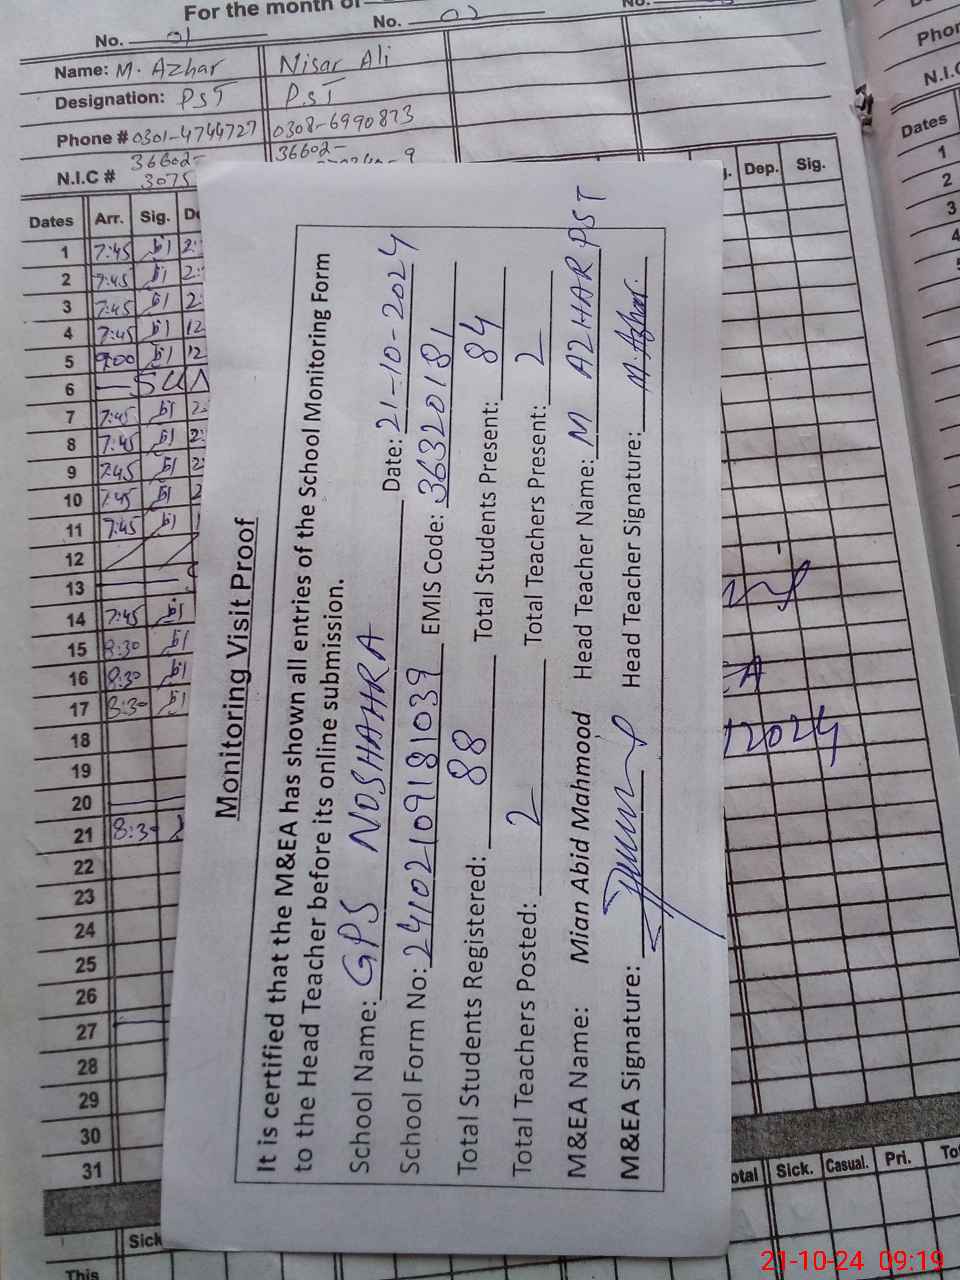 For the month of
No. 01
No. 02
No.
Name: M. Azhar
Nisar Ali
Designation: PST
P.ST
Phone # 0301-4744727
0308-6990873
N.I.C # 36602-
3075
36602-
Dates Arr. Sig.
Dep. Sig.
1 7:45
2 7:45
3 7:45
4 7:45 12
5 9:00 12
6 SUN
7 7:45
8 7:45
9 7:45
10 7:45
11 7:45
12
13
14 7:45
15 8:30
16 8:30
17 8:30
18
19
20
21 8:30
22
23
24
25
26
27
28
29
30
31
Sick
This
Sick. Casual. Pri.
N.I.C
Dates
1
2
3
4
Monitoring Visit Proof
It is certified that the M&EA has shown all entries of the School Monitoring Form
to the Head Teacher before its online submission.
School Name: GPS NOSHAHRA Date: 21-10-2024
School Form No: 24102109181039 EMIS Code: 36320181
Total Students Registered: 88 Total Students Present: 84
Total Teachers Posted: 2 Total Teachers Present: 2
M&EA Name: Mian Abid Mahmood Head Teacher Name: M AZHAR PST
M&EA Signature: Head Teacher Signature: M. Azhar
21-10-24 09:19